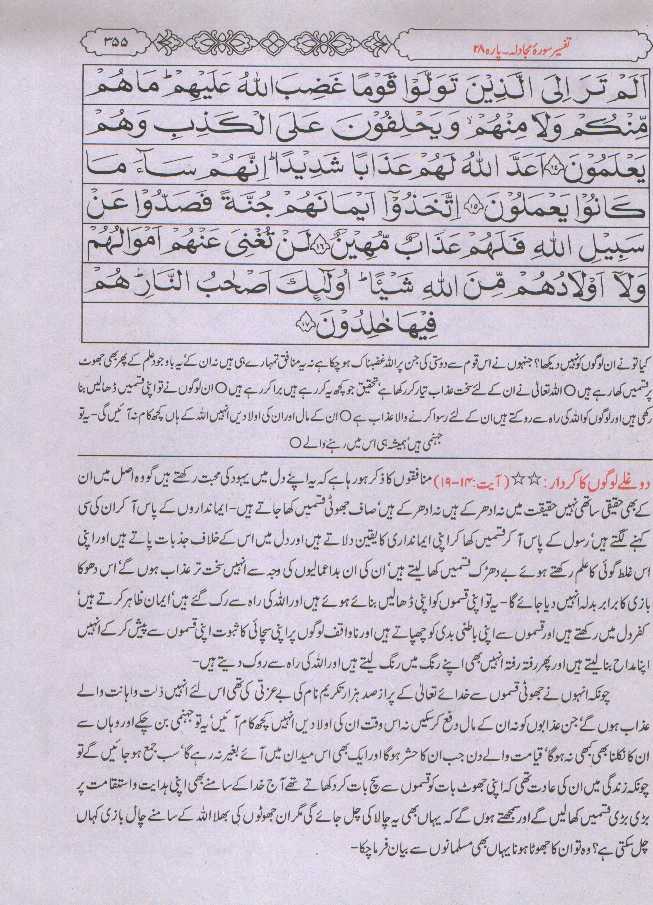 تفسیر سورۂ مجادلہ۔ پارہ ۲۸
۳۵۵
اَلَمْ تَرَ اِلَى الَّذِيْنَ تَوَلَّوْا قَوْمًا غَضِبَ اللهُ عَلَيْهِمْ ؕ مَا هُمْ
مِّنْكُمْ وَلَا مِنْهُمْ ۙ وَيَحْلِفُوْنَ عَلَى الْكَذِبِ وَهُمْ
يَعْلَمُوْنَ ۝۱۴ اَعَدَّ اللهُ لَهُمْ عَذَابًا شَدِيْدًا ؕ اِنَّهُمْ سَآءَ مَا
كَانُوْا يَعْمَلُوْنَ ۝۱۵ اِتَّخَذُوْٓا اَيْمَانَهُمْ جُنَّةً فَصَدُّوْا عَنْ
سَبِيْلِ اللهِ فَلَهُمْ عَذَابٌ مُّهِيْنٌ ۝۱۶ لَنْ تُغْنِيَ عَنْهُمْ اَمْوَالُهُمْ
وَلَآ اَوْلَادُهُمْ مِّنَ اللهِ شَيْئًا ؕ اُولٰٓئِكَ اَصْحٰبُ النَّارِ ؕ هُمْ
فِيْهَا خٰلِدُوْنَ ۝۱۷
کیا تو نے ان لوگوں کو نہیں دیکھا؟ جنہوں نے اس قوم سے دوستی کی جن پر اللہ غضبناک ہو چکا ہے نہ یہ منافق تمہارے ہی ہیں نہ ان کے' یہ باوجود علم کے پھر بھی جھوٹ
پر قسمیں کھا رہے ہیں ○ اللہ تعالیٰ نے ان کے لئے سخت عذاب تیار کر رکھا ہے' تحقیق جو کچھ یہ کر رہے ہیں' برا کر رہے ہیں ○ ان لوگوں نے تو اپنی قسمیں ڈھالیں بنا
رکھی ہیں اور لوگوں کو اللہ کی راہ سے روکتے ہیں ان کے لئے رسوا کرنے والا عذاب ہے ○ ان کے مال اور ان کی اولادیں انہیں اللہ کے ہاں کچھ کام نہ آئیں گی۔ یہ تو
جہنمی ہیں' ہمیشہ ہی اس میں رہنے والے ○
دوغلے لوگوں کا کردار: ☆☆ (آیت: ۱۴-۱۹) منافقوں کا ذکر ہو رہا ہے کہ یہ اپنے دل میں یہود کی محبت رکھتے ہیں گو وہ اصل میں ان
کے بھی حقیقی ساتھی نہیں' حقیقت میں نہ ادھر کے ہیں نہ ادھر کے ہیں' صاف جھوٹی قسمیں کھا جاتے ہیں۔ ایمانداروں کے پاس آ کر ان کی سی
کہنے لگتے ہیں' رسول کے پاس آ کر قسمیں کھا کر اپنی ایمانداری کا یقین دلاتے ہیں اور دل میں اس کے خلاف جذبات پاتے ہیں اور اپنی
اس غلط گوئی کا علم رکھتے ہوئے بے دھڑک قسمیں کھا لیتے ہیں' ان کی ان بداعمالیوں کی وجہ سے انہیں سخت تر عذاب ہوں گے' اس دھوکا
بازی کا برابر بدلہ انہیں دیا جائے گا۔ یہ تو اپنی قسموں کو اپنی ڈھالیں بنائے ہوئے ہیں اور اللہ کی راہ سے رک گئے ہیں' ایمان ظاہر کرتے ہیں'
کفر دل میں رکھتے ہیں اور قسموں سے اپنی باطنی بدی کو چھپاتے ہیں اور ناواقف لوگوں پر اپنی سچائی کا ثبوت اپنی قسموں سے پیش کر کے انہیں
اپنا مداح بنا لیتے ہیں اور پھر رفتہ رفتہ انہیں بھی اپنے رنگ میں رنگ لیتے ہیں اور اللہ کی راہ سے روک دیتے ہیں۔
چونکہ انہوں نے جھوٹی قسموں سے خدائے تعالیٰ کے پر از صد ہزار تکریم نام کی بے عزتی کی تھی اس لئے انہیں ذلت و اہانت والے
عذاب ہوں گے' جن عذابوں کو نہ ان کے مال دفع کر سکیں نہ اس وقت ان کی اولادیں انہیں کچھ کام آئیں' یہ تو جہنمی بن چکے اور وہاں سے
ان کا نکلنا بھی کبھی نہ ہوگا' قیامت والے دن جب ان کا حشر ہوگا اور ایک بھی اس میدان میں آئے بغیر نہ رہے گا' سب جمع ہو جائیں گے تو
چونکہ زندگی میں ان کی عادت تھی کہ اپنی جھوٹ بات کو قسموں سے سچ بات کر دکھاتے تھے آج خدا کے سامنے بھی اپنی ہدایت و استقامت پر
بڑی بڑی قسمیں کھا لیں گے اور سمجھتے ہوں گے کہ یہاں بھی یہ چالاکی چل جائے گی مگر ان جھوٹوں کی بھلا اللہ کے سامنے چال بازی کہاں
چل سکتی ہے؟ وہ تو ان کا جھوٹا ہونا یہاں بھی مسلمانوں سے بیان فرما چکا۔